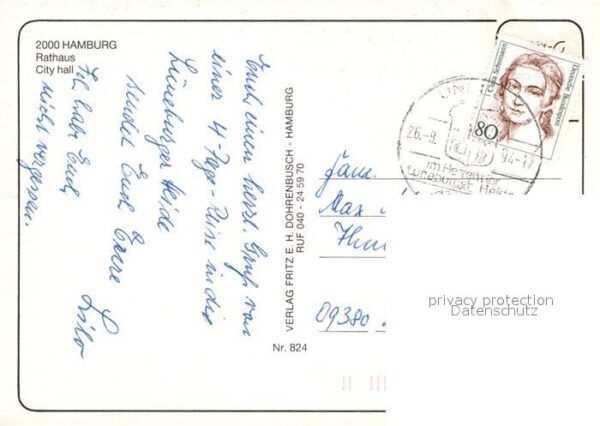 2000 HAMBURG
Rathaus
City hall
Euch einen herzl. Gruß von
einer 4-Tage-Reise in die
Lüneburger Heide
sendet Euch Eure
Ich habe Euch
nicht vergessen.
VERLAG FRITZ E. H. DOHRENBUSCH - HAMBURG
RUF 040 - 24 59 70
Nr. 824
Clara Schumann
Deutsche Bundespost
80
26.-9.
94-17
im Herzen der
Lüneburger Heide
Fam.
Max
09380
privacy protection
Datenschutz